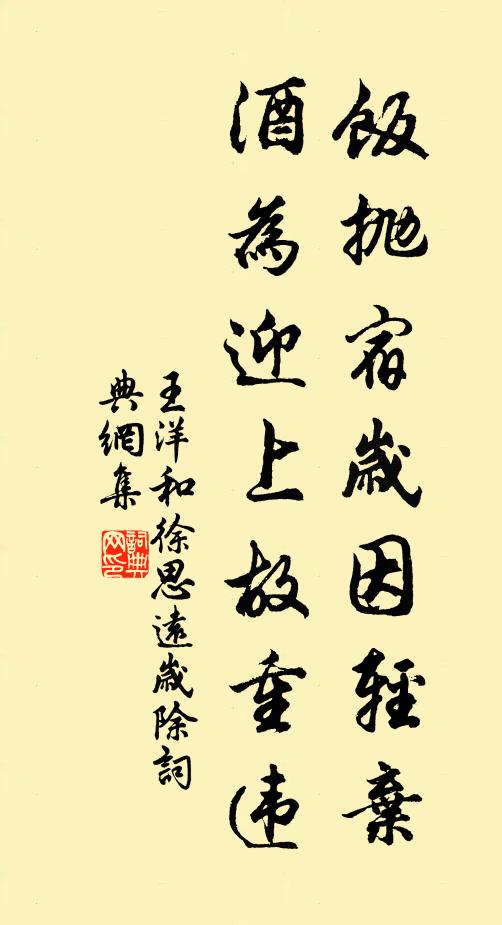 飯拋宿歲因輕棄
酒為迎上故重违
王洋和徐思遠歲除詞
典網集
詞典
网印